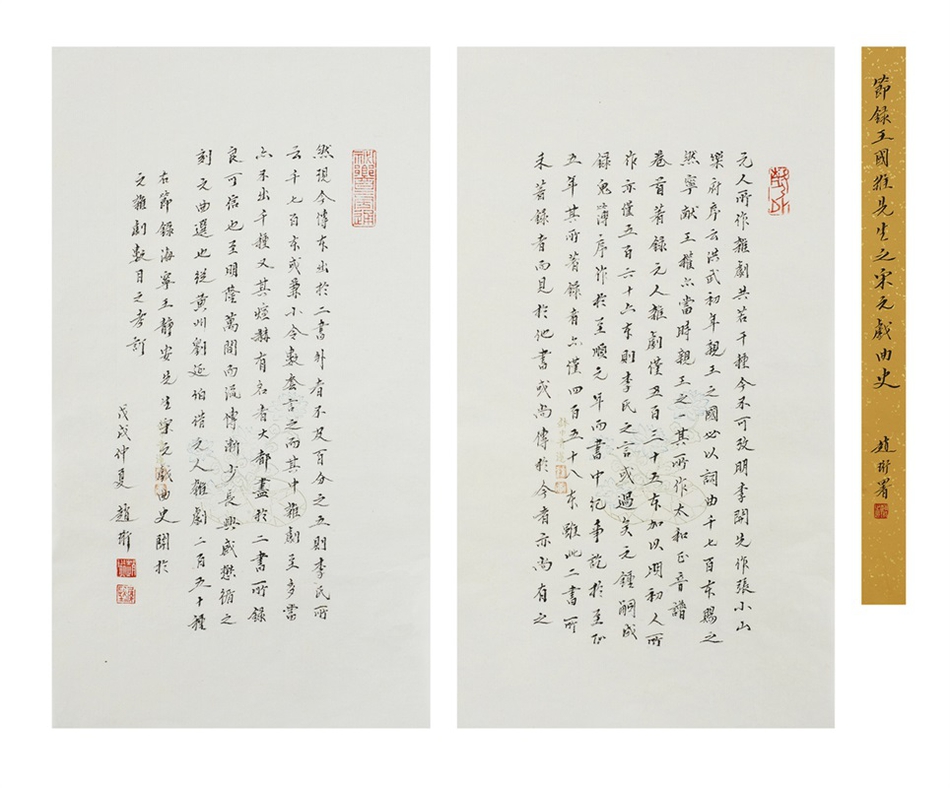 節錄王國維先生之宋元戲曲史
趙珩署
元人所作雜劇共若干種今不可攷明李開先作張小山
樂府序云洪武初年親王之國必以詞曲千七百本賜之
然寧獻王權亦當時親王之一其所作太和正音譜
卷首著錄元人雜劇僅五百三十五本加以明初人所
作亦僅五百六十六本則李氏之言或過矣元鍾嗣成
錄鬼簿序作於至順元年而書中紀事訖於至正
五年其所著錄者亦僅四百五十八本雖此二書所
未著錄者而見於他書或尚傳於今者亦尚有之
然現今傳本出於二書外者不及百分之五則李氏所
云千七百本或兼小令套數言之而其中雜劇至多當
亦不出千種又其煊赫有名者大都盡於二書所錄
良可信也至明隆萬間而流傳漸少長興臧懋循之
刻元曲選也從黃州劉延伯借元人雜劇二百五十種
右節錄海寧王靜安先生宋元戲曲史關於
元雜劇數目之考訂
戊戌仲夏 趙珩